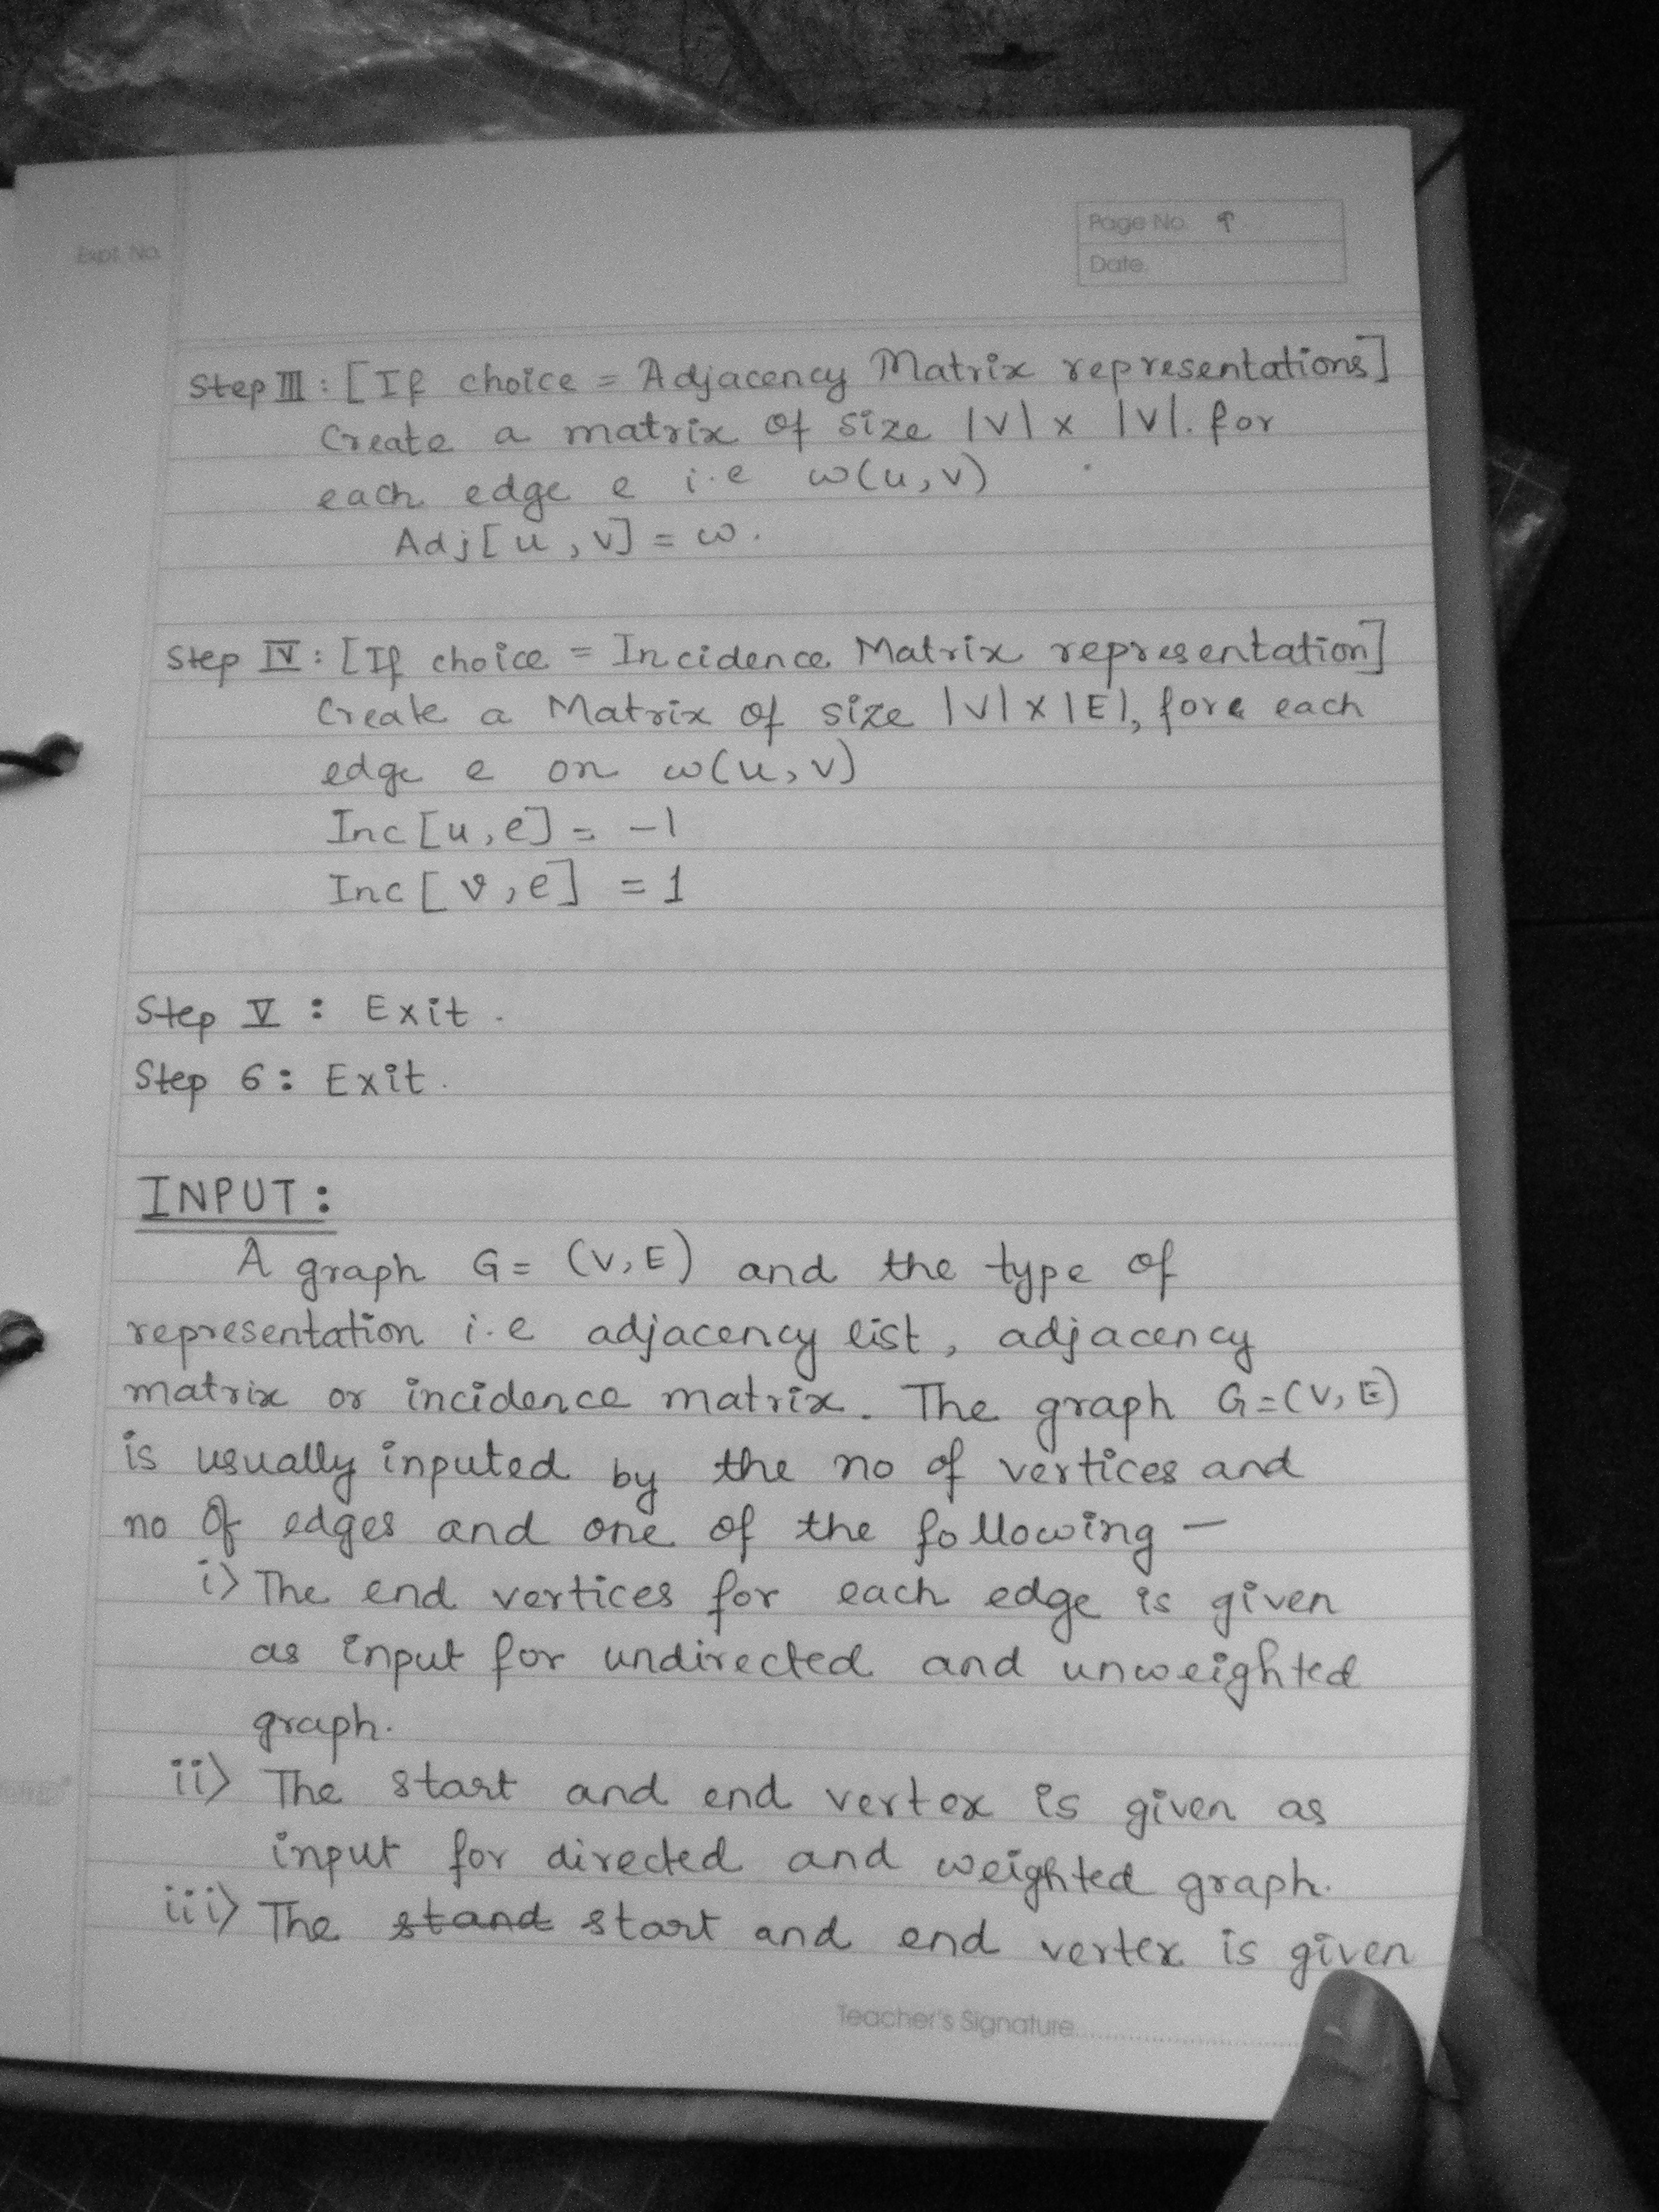 Expt. No.
Page No. 9
Date.
Step III : [If choice = Adjacency Matrix representations]
Create a matrix of size |V| x |V|. for
each edge e i.e w(u,v)
Adj[u,v] = w.
Step IV : [If choice = Incidence Matrix representation]
Create a Matrix of size |V| x |E|, fore each
edge e on w(u,v)
Inc[u,e] = -1
Inc[v,e] = 1
Step V : Exit.
Step 6 : Exit.
INPUT :
A graph G = (V,E) and the type of
representation i.e adjacency list, adjacency
matrix or incidence matrix. The graph G=(V,E)
is usually inputed by the no of vertices and
no of edges and one of the following —
i> The end vertices for each edge is given
as input for undirected and unweighted
graph.
ii> The start and end vertex is given as
input for directed and weighted graph.
iii> The stand start and end vertex is given
Teacher's Signature